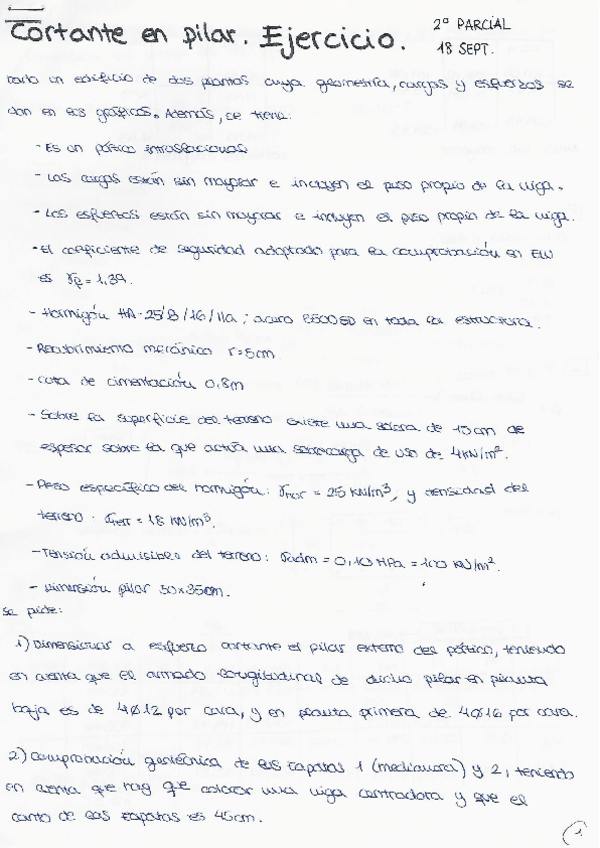 Cortante en pilar. Ejercicio.
2º PARCIAL
18 SEPT.
Dado un edificio de dos plantas cuya geometría, cargas y esfuerzos se
dan en los gráficos. Además, se tiene:
- Es un pórtico intraslacional
- Las cargas están sin mayorar e incluyen el peso propio de la viga.
- Los esfuerzos están sin mayorar e incluyen el peso propio de la viga.
- El coeficiente de seguridad adoptado para la comprobación en ELU
es γf = 1,39.
- Hormigón HA-25/B/16/IIa ; acero B500SD en toda la estructura.
- Recubrimiento mecánico r=5cm
- Cota de cimentación 0,8m
- Sobre la superficie del terreno existe una solera de 15cm de
espesor sobre la que actúa una sobrecarga de uso de 4kN/m².
- Peso específico del hormigón: γhor = 25 kN/m³, y densidad del
terreno: γterr = 18 kN/m³.
- Tensión admisible del terreno: σadm = 0,10 MPa = 100 kN/m².
- Dimensión pilar 50x35cm.
Se pide:
1) Dimensionar a esfuerzo cortante el pilar extremo del pórtico, teniendo
en cuenta que el armado longitudinal de dicho pilar en planta
baja es de 4Ø12 por cara, y en planta primera de 4Ø16 por cara.
2) Comprobación geotécnica de las zapatas 1 (medianera) y 2, teniendo
en cuenta que hay que colocar una viga centradora y que el
canto de las zapatas es 45cm.
1